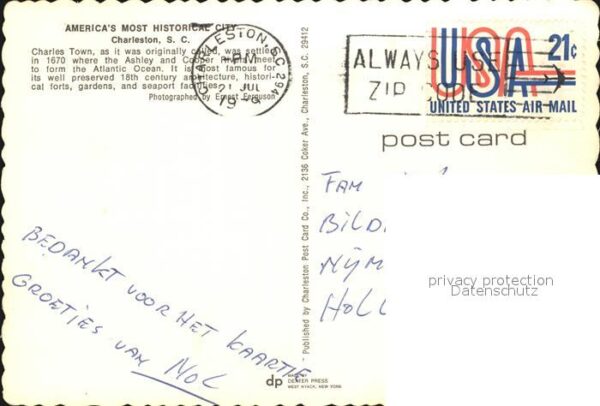 AMERICA'S MOST HISTORICAL CITY
Charleston, S. C.
Charles Town, as it was originally called, was settled
in 1670 where the Ashley and Cooper Rivers meet
to form the Atlantic Ocean. It is most famous for
its well preserved 18th century architecture, histori-
cal forts, gardens, and seaport facilities.
Photographed by Ernest Ferguson
CHARLESTON S.C. 294
PM
21 JUL
ALWAYS USE
ZIP
USA 21c
UNITED STATES AIR MAIL
post card
Published by Charleston Post Card Co., Inc., 2136 Coker Ave., Charleston, S.C. 29412
FAM
BILD
NIJM
HOLL
privacy protection
Datenschutz
BEDANKT VOOR HET KAARTJE
GROETJES VAN NOL
dp
MADE BY
DEXTER PRESS
WEST NYACK, NEW YORK